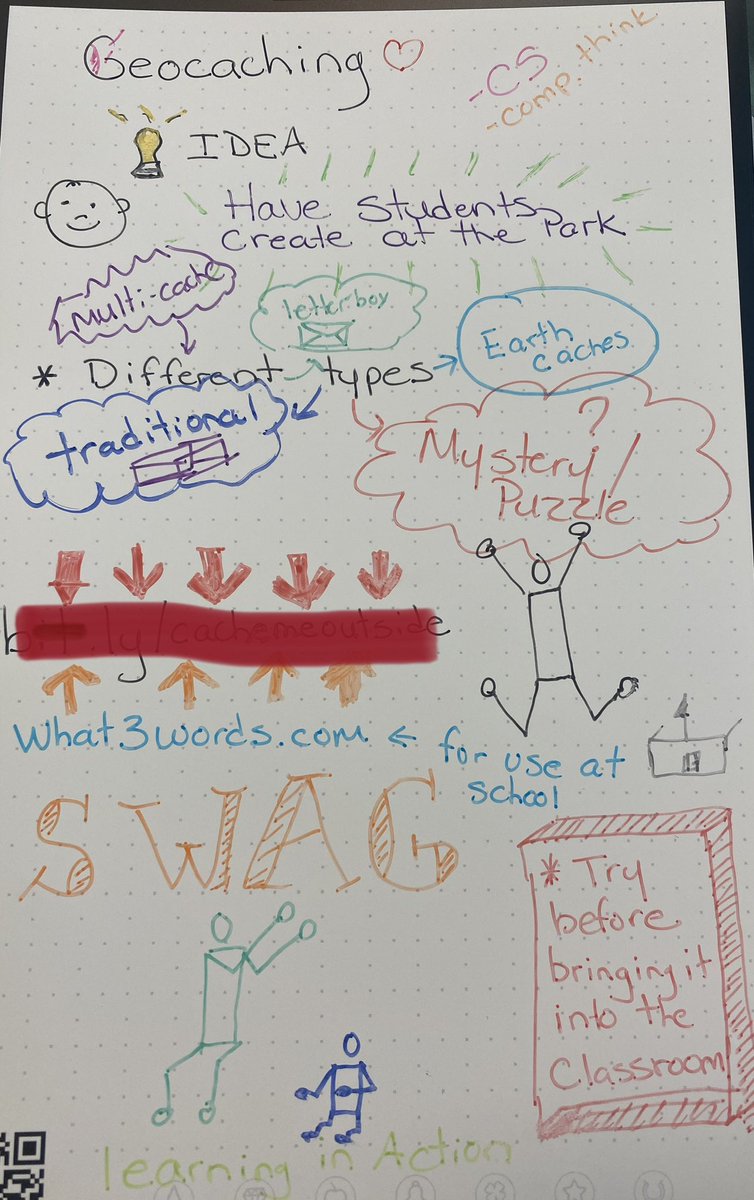 Geocaching
-CS
-comp. think
IDEA
Have Students
create at the Park
Multi-cache
letterboy
Earth
caches
* Different types
traditional
?
Mystery/
Puzzle
bit.ly/cachemeoutside
What3words.com ← for use at
school
SWAG
* Try
before
bringing it
into the
Classroom
learning in Action